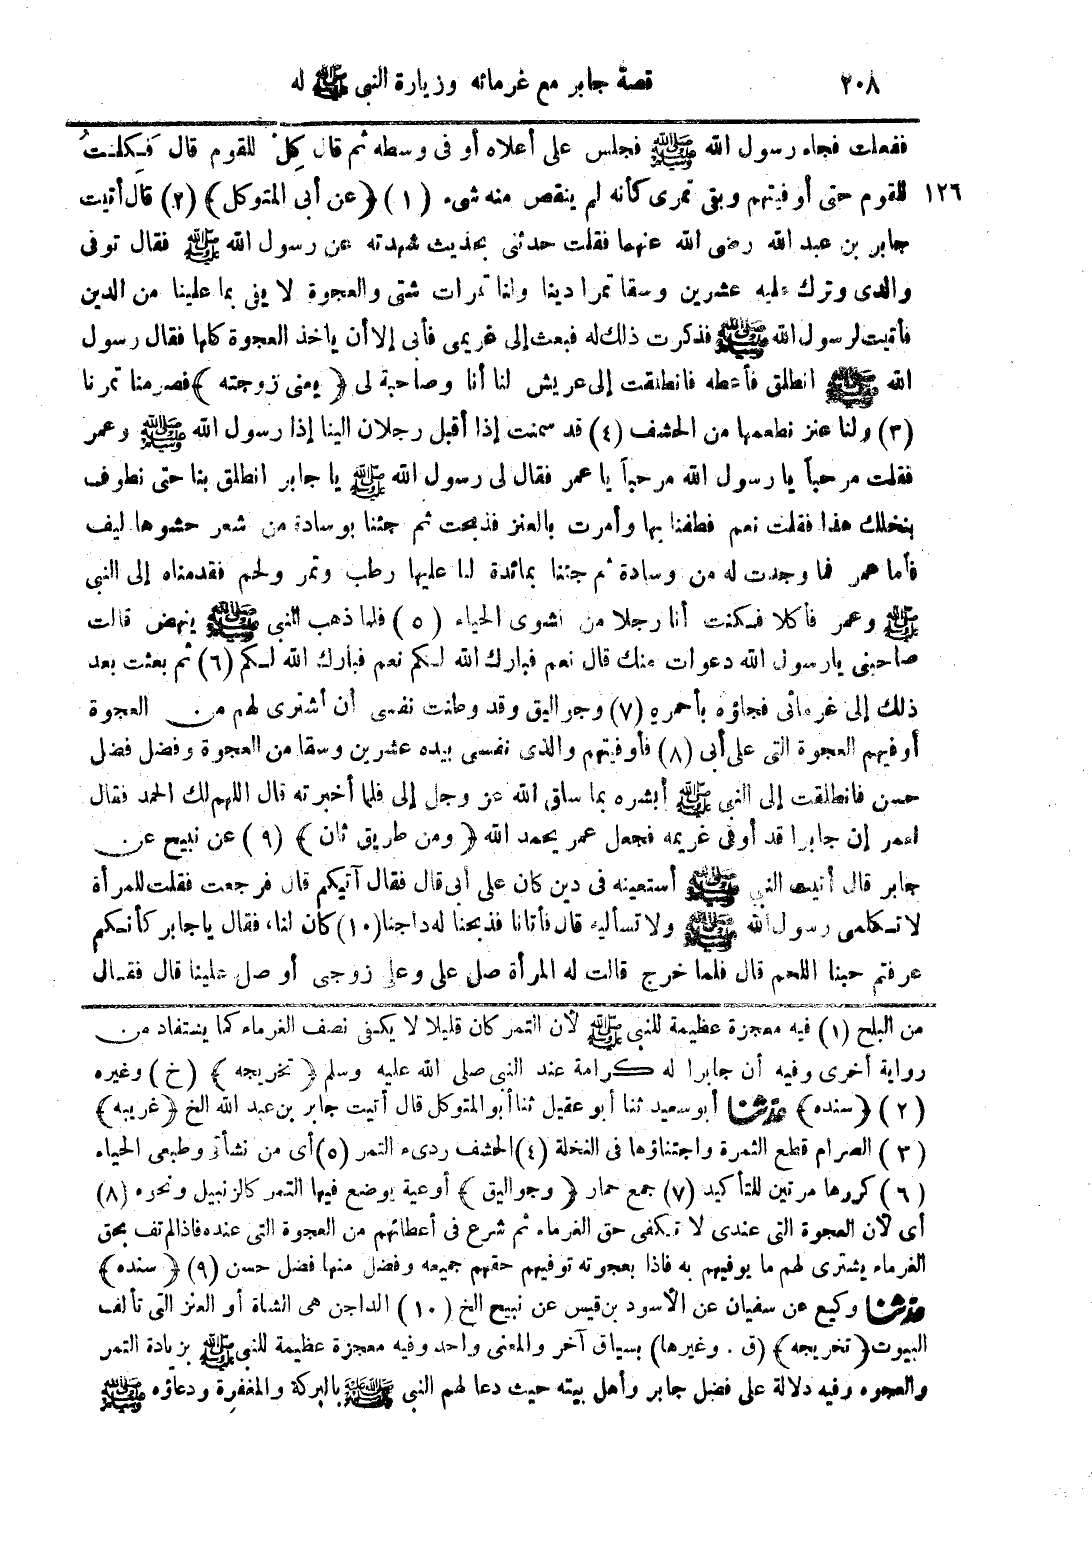 ٢٠٨ قصة جابر مع غرمائه وزيارة النبى ﷺ له
ففعلت فجاء رسول الله ﷺ فجلس على أعلاه أو فى وسطه ثم قال كِلْ للقوم قال فَكِلْتُ
١٢٦ للقوم حتى أوفيتهم وبقى تمرى كأنه لم ينقص منه شىء (١) ﴿عن أبى المتوكل﴾ (٢) قال أتيت
جابر بن عبد الله رضى الله عنهما فقلت حدثنى بحديث شهدته عن رسول الله ﷺ فقال توفى
والدى وترك عليه عشرين وسقا تمرا دينا ولنا تمرات شتى والعجوة لا يفى بما علينا من الدين
فأتيت لرسول الله ﷺ فذكرت ذلك له فبعث إلى غريمى فأبى إلا أن ياخذ العجوة كلها فقال رسول
الله ﷺ انطلق فأعطه فانطلقت إلى عريش لنا أنا وصاحبة لى ﴿يعنى زوجته﴾ فصرمنا تمرنا
(٣) ولنا عنز نطعمها من الحشف (٤) قد سمنت إذا أقبل رجلان الينا إذا رسول الله ﷺ وعمر
فقلت مرحباً يا رسول الله مرحباً يا عمر فقال لى رسول الله ﷺ يا جابر انطلق بنا حتى نطوف
بنخلك هذا فقلت نعم فطفنا بها وأمرت بالعنز فذبحت ثم جئنا بوسادة من شعر حشوها ليف
فأما عمر فما وجدت له من وسادة ثم جئنا بمائدة لنا عليها رطب وتمر ولحم فقدمناه إلى النبى
ﷺ وعمر فأكلا فكنت أنا رجلا من نشوى الحياء (٥) فلما ذهب النبى ﷺ ينهض قالت
صاحبتى يارسول الله دعوات منك قال نعم فبارك الله لكم نعم فبارك الله لكم (٦) ثم بعثت بعد
ذلك إلى غرمائى فجاؤه بأحمره (٧) وجواليق وقد وطنت نفسى أن أشترى لهم من العجوة
أوفيهم العجوة التى على أبى (٨) فأوفيتهم والذى نفسى بيده عشرين وسقا من العجوة وفضل فضل
حسن فانطلقت إلى النبى ﷺ أبشره بما ساق الله عز وجل إلى فلما أخبرته قال اللهم لك الحمد فقال
لعمر إن جابرا قد أوفى غريمه فجعل عمر يحمد الله ﴿ومن طريق ثان﴾ (٩) عن نبيح عن
جابر قال أتيت النبى ﷺ أستعينه فى دين كان على أبى قال فقال آتيكم قال فرجعت فقلت للمرأة
لا تكلمى رسول الله ﷺ ولا تسأليه قال فأتانا فذبحنا له داجنا (١٠) كان لنا، فقال يا جابر كأنكم
عرفتم حبنا اللحم قال فلما خرج قالت له المرأة صل على وعلى زوجى أو صل علينا قال فقال
من البلح (١) فيه معجزة عظيمة للنبى ﷺ لأن التمر كان قليلا لا يكفى نصف الغرماء كما يستفاد من
رواية أخرى وفيه أن جابرا له كرامة عند النبى صلى الله عليه وسلم ﴿تخريجه﴾ (خ) وغيره
(٢) ﴿سنده﴾ حدثنا أبو سعيد ثنا أبو عقيل ثنا أبو المتوكل قال أتيت جابر بن عبد الله الخ ﴿غريبه﴾
(٣) الصرام قطع الثمرة واجتناؤها فى النخلة (٤) الحشف ردىء التمر (٥) أى من نشأتى وطبعى الحياء
(٦) كررها مرتين للتأكيد (٧) جمع حمار ﴿وجواليق﴾ أوعية يوضع فيها التمر كالزنبيل ونحوه (٨)
أى لأن العجوة التى عندى لا تكفى حق الغرماء ثم شرع فى أعطائهم من العجوة التى عنده فاذا لم تف بحق
الغرماء يشترى لهم ما يوفيهم به فاذا بعجوته توفيهم حقهم جميعه وفضل منها فضل حسن (٩) ﴿سنده﴾
حدثنا وكيع عن سفيان عن الأسود بن قيس عن نبيح الخ (١٠) الداجن هى الشاة أو العنز التى تألف
البيوت ﴿تخريجه﴾ (ق . وغيرها) بسياق آخر والمعنى واحد وفيه معجزة عظيمة للنبى ﷺ بزيادة التمر
والعجوه وفيه دلالة على فضل جابر وأهل بيته حيث دعا لهم النبى ﷺ بالبركة والمغفرة ودعاؤه ﷺ